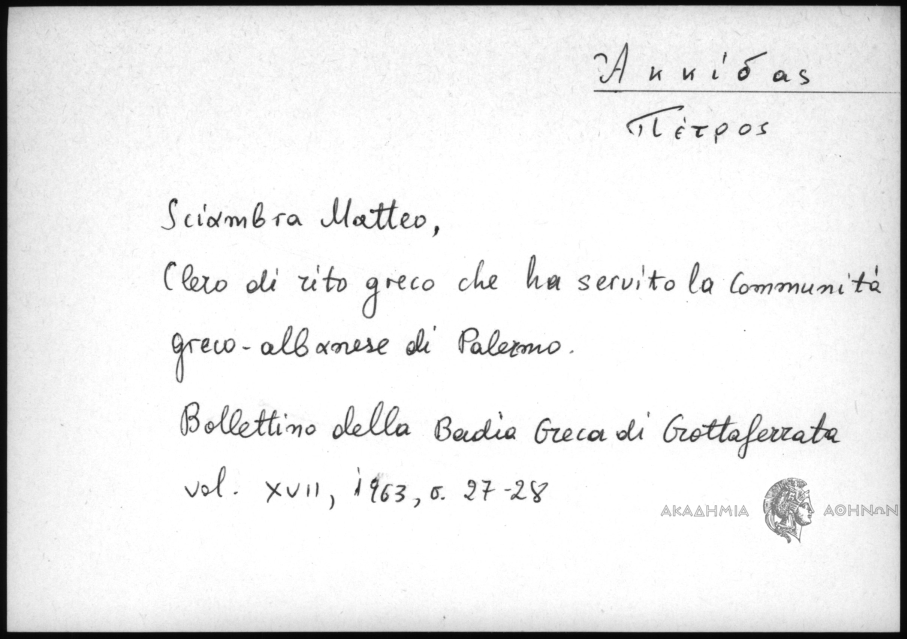 Ἀκκίδας
Πέτρος
Sciambra Matteo,
Clero di rito greco che ha servito la Communità
greco-albanese di Palermo.
Bollettino della Badia Greca di Grottaferrata
vol. XVII, 1963, σ. 27-28
ΑΚΑΔΗΜΙΑ ΑΘΗΝΩΝ